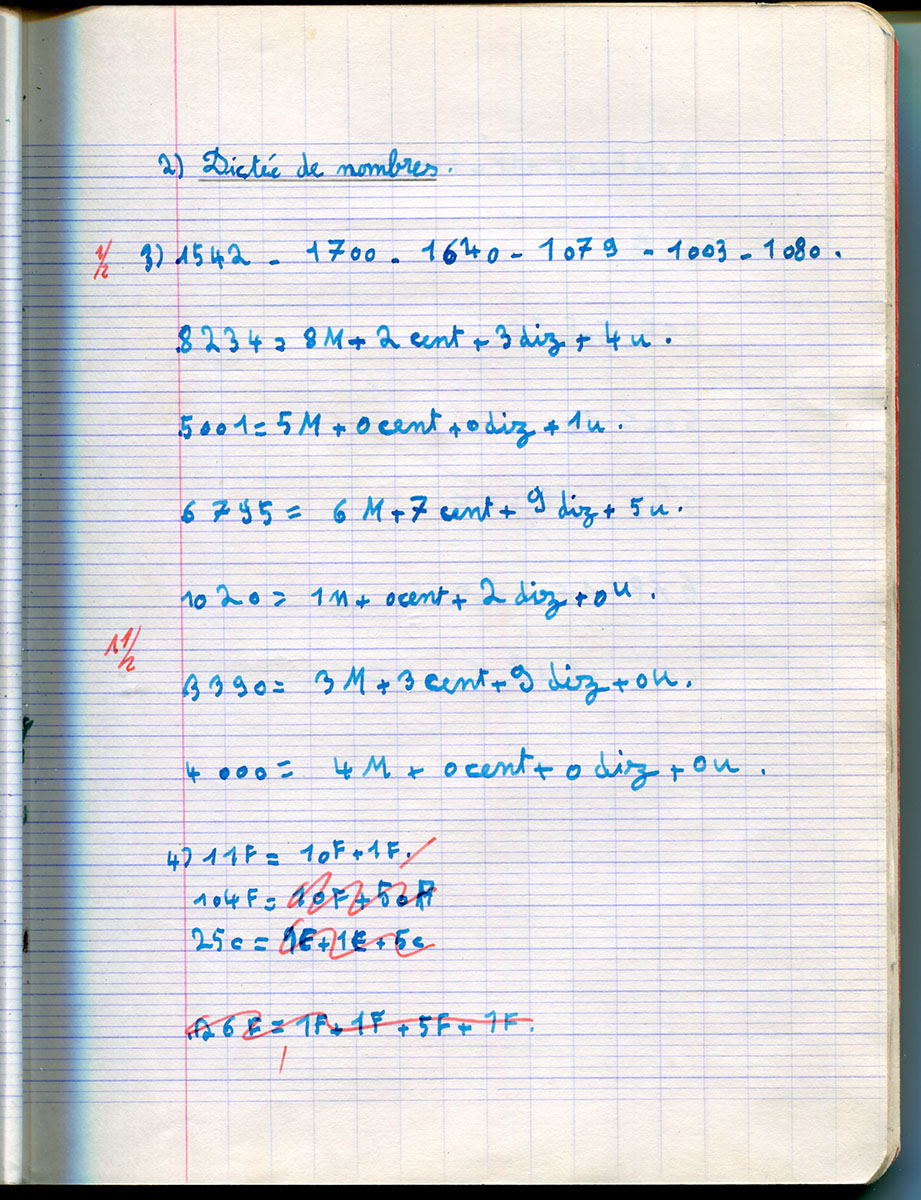 2) Dictée de nombres.
1/2 3) 1542 - 1700 - 1640 - 1079 - 1003 - 1080.
8234 = 8M + 2 cent + 3 diz + 4 u.
5001 = 5M + 0 cent + 0 diz + 1u.
6795 = 6 M + 7 cent + 9 diz + 5 u.
1020 = 1M + 0cent + 2 diz + 0u.
11/2
3390 = 3M + 3 cent + 9 diz + 0u.
4000 = 4M + 0cent + 0 diz + 0u.
4) 11F = 10F + 1F.
104F = 10F + 50F
25c = 1c + 1c + 5c
126F = 1F + 1F + 5F + 1F.